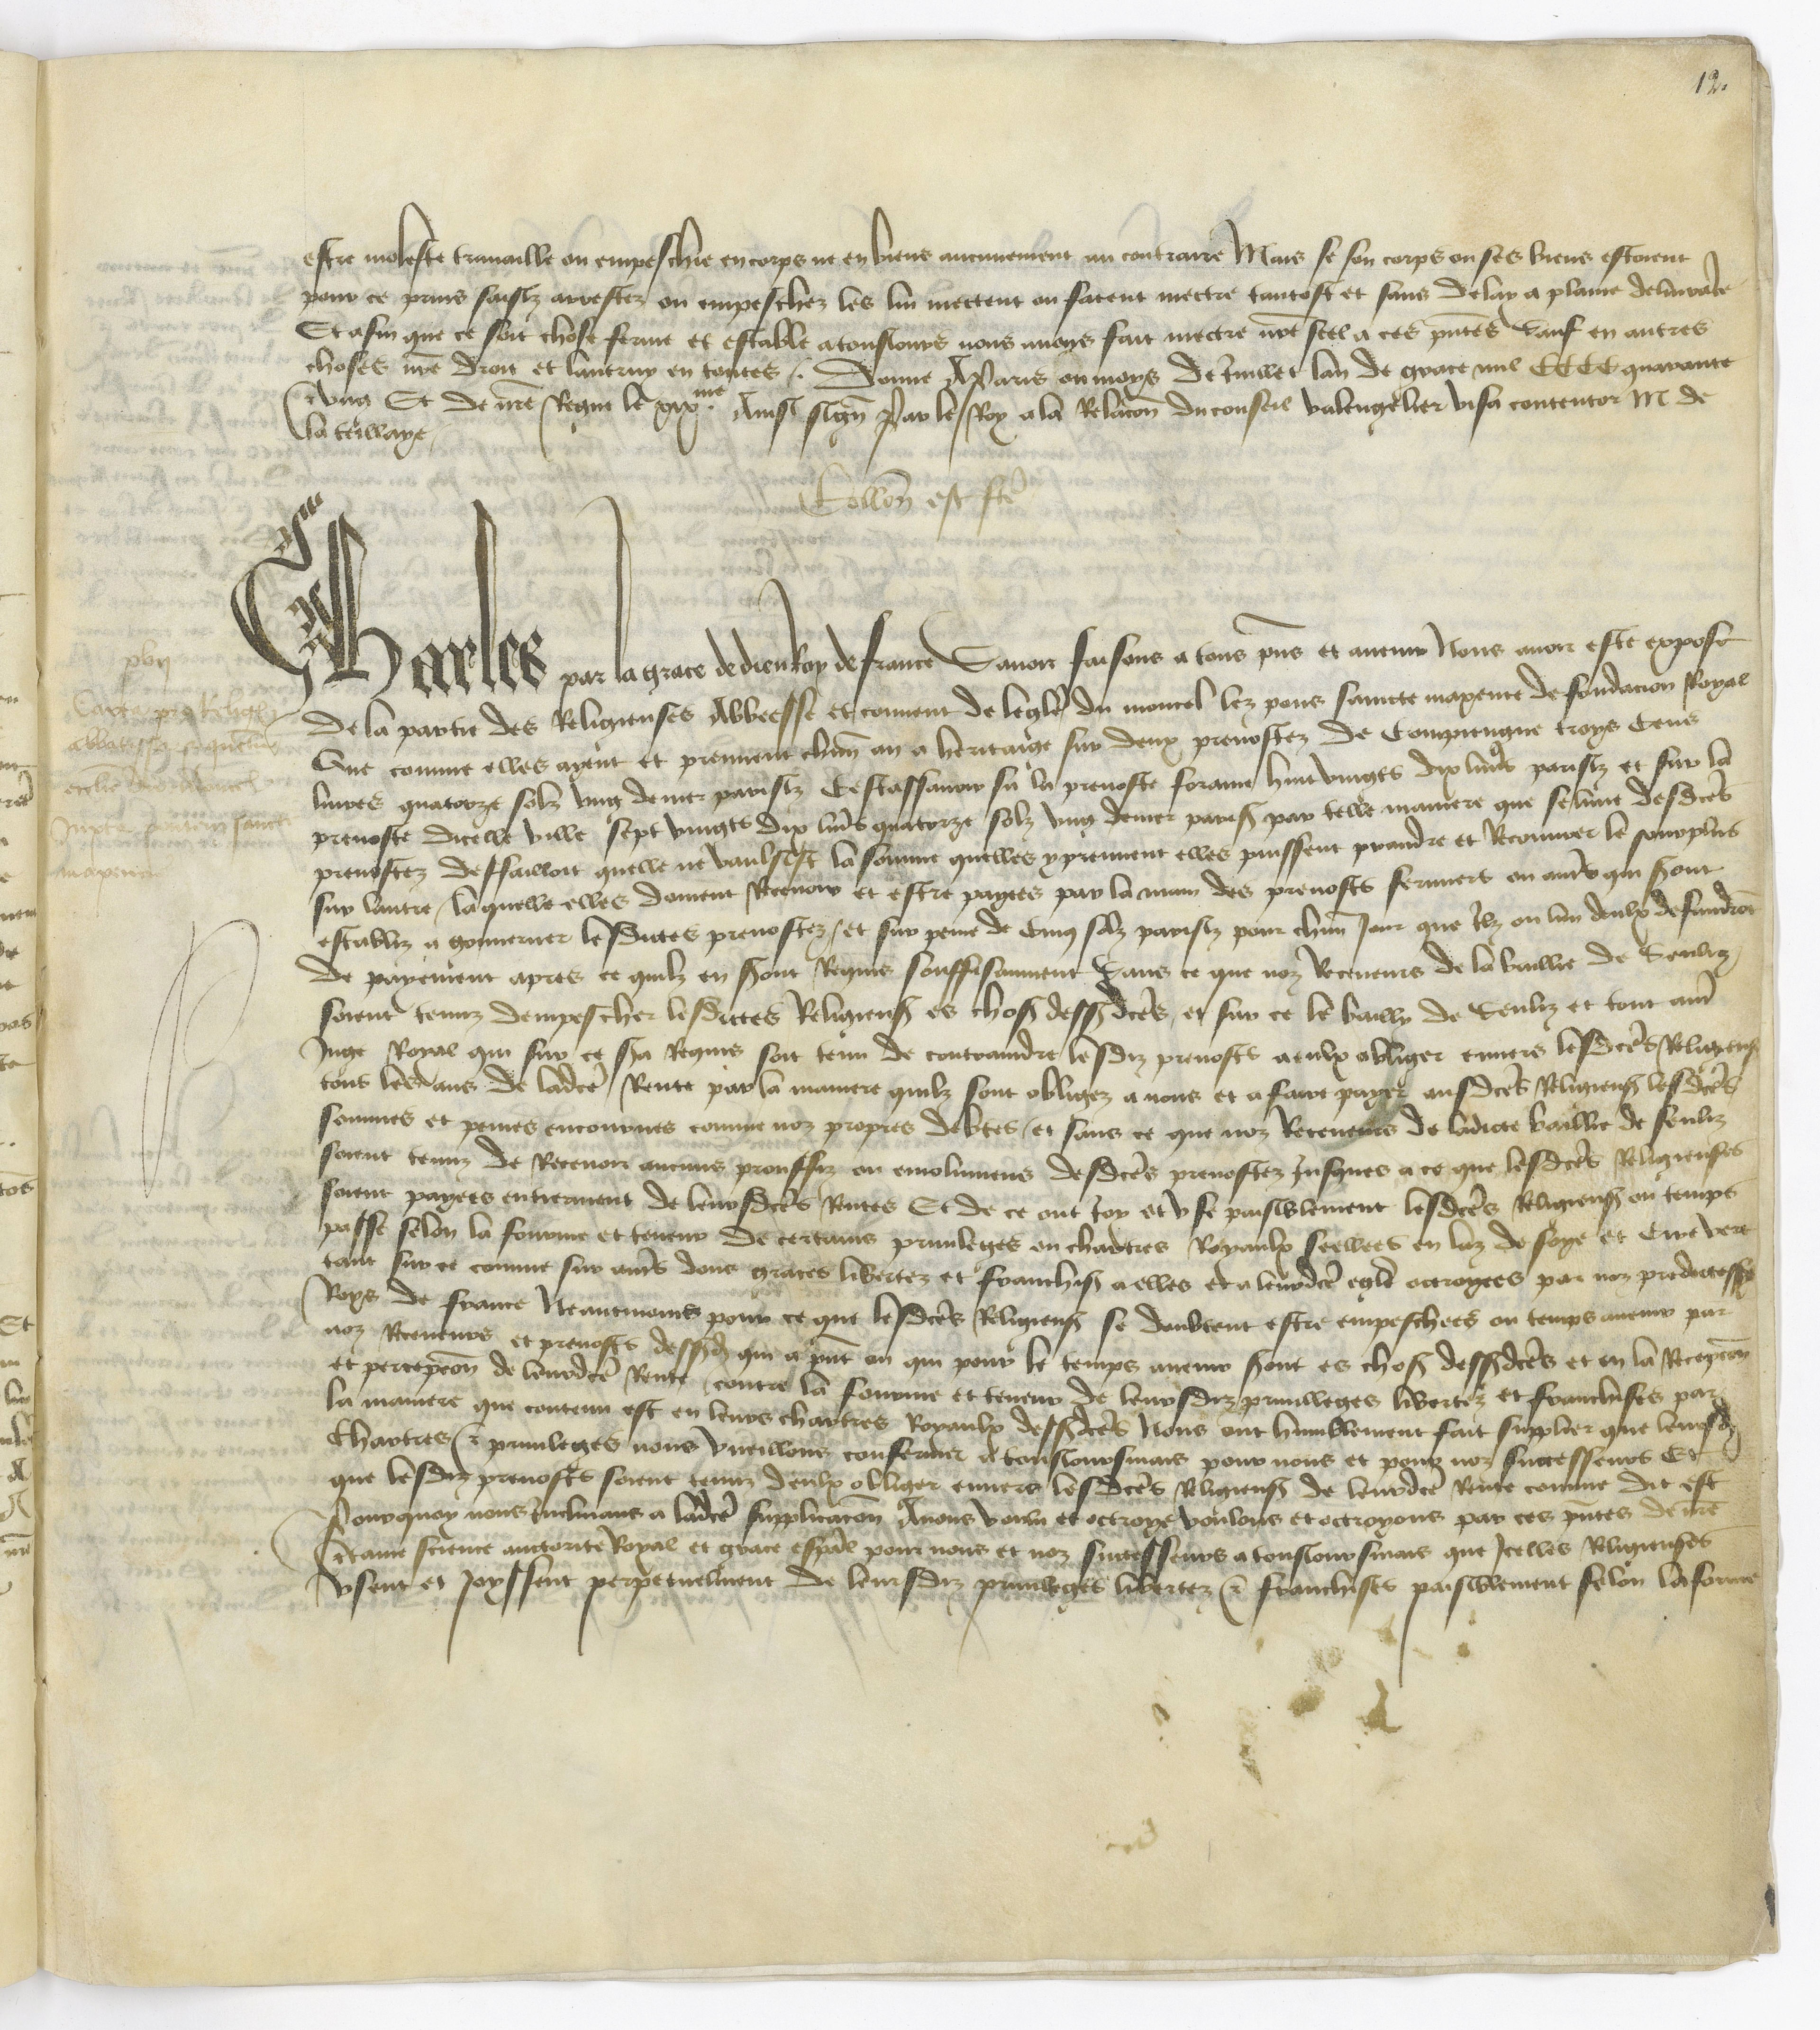 12.
estre moleste travaille ou empeschie en corps ne en biens aucunement au contraire Mais se son corps ou ses biens estoient
pour ce prins saisiz arrestez ou empeschez les lui mectent ou facent mectre tantost et sans delay a plaine delivrāce
Et afin que ce soit chose ferme et estable a tousiours nous avons fait mectre nr̄e scel a ces pn̄tes Sauf en autres
choses nr̄e droit et lautruy en toutes /. Donne A Paris ou moys de Juillet lan de grace mil CCCC quarante
et ung Et de nr̄e Regne le xixme. Ainsi signē Par le Roy a la Relacōn du conseil Valengelier visa contentor M de
la teillaye
Collōn est fcē
Charles par la grace de dieu Roy de france Savoir faisons a tous pn̄s et avenir Nous avoir este expose
de la partie des Religieuses Abbeesse et couvent de leglē du moncel lez pons saincte maxence de fondacion Royal
Que comme elles ayent et prennent chūn an a heritaige sur deux prevostez de Compiengne troys Cens
livres quatorze solz ung denier parisiz Cestassavoir sur la prevoste foraine huit vingts dix livr̄s parisiz et sur la
prevoste dicelle ville sept vingts dix livr̄s quatorze solz ung denier paris̄ par telle maniere que se lune desdcēs
prevostez deffailloit quelle ne vaulsist la somme quelles y prennent elles puissent prandre et Recouvrer le sourplus
sur lautre / laquelle elles doivent Recevoir et estre payees par la main des prevosts fermiers ou autr̄s qui s̄ont
establiz a gouverner lesdictes prevostez / et sur peine de Cinq solz parisiz pour chūn Jour que Ilz ou lun deulx defaudrōt
de payement apres ce quilz en s̄ont Requis souffisamment Sans ce que noz Receveurs de la baillie de Senliz
soient tenuz dempescher lesdictes Religieus̄ es chos̄ dess̄dcēs / et sur ce le bailly de Senliz et tout autr̄
Juge Royal qui sur ce s̄a Requis soit tenu de contraindre lesdiz prevosts a eulx obliger envers lesdcēs Religieus̄
tous les ans de ladcē Rente par la maniere quilz sont obligez a nous et a faire payer ausdcēs Religieus̄ lesdcēs
sommes et peines encourues comme noz propres debtes / et sans ce que noz Receveurs de ladicte baillie de senliz
soient tenuz de Recevoir aucuns prouffiz ou emolumens desdcēs prevostez Jusques a ce que lesdcēs Religieuses
soient payees entierement de leursdcēs Rentes Et de ce ont Joy et use paisiblement lesdcēs Religieus̄ ou temps
passe selon la fourme et teneur de certains privileges ou chartres Royaulx seellees en laz de soye et Cire vert
tant sur ce comme sur autr̄s dons graces libertez et franchis̄ a elles et a leurdcē eglē octroyees par noz predicess̄
Roys de france Neantmoins pour ce que lesdcēs Religieus̄ se doubtent estre empeschees ou temps avenir par
noz Receveurs et prevosts dess̄dz qui a pn̄t ou qui pour le temps avenir s̄ont es chos̄ dess̄dcēs et en la Recepcōn
et percepcōn de leurdcē Rente / contre la fourme et teneur de leursdiz privilleges libertez et franchises par
la maniere que contenu est en leurs chartres Royaulx dess̄dcēs Nous ont humblement fait supplier que leursdz
Chartres et privileges nous vueillons confermer a tousioursmais pour nous et pour noz successeurs Et
que lesdiz prevosts soient tenuz deulx obliger envers lesdcēs Religieus̄ de leurdcē Rente comme dit est
Pourquoy nous Inclinans a ladcē supplicacōn Avons voulu et octroye voulons et octroyons par ces pn̄tes de nr̄e
c̄taine science auctorite Royal et grace esp̄al pour nous et noz successeurs a tousioursmais que Icelles Religieuses
usent et Joyssent perpetuelment de leursdiz privilleges libertez et franchises paisiblement selon la fourme
xvij
Carta pro Religio
abbatissa et quentu
ecclīe de moncello
Juxta pontem sancte
maxencie